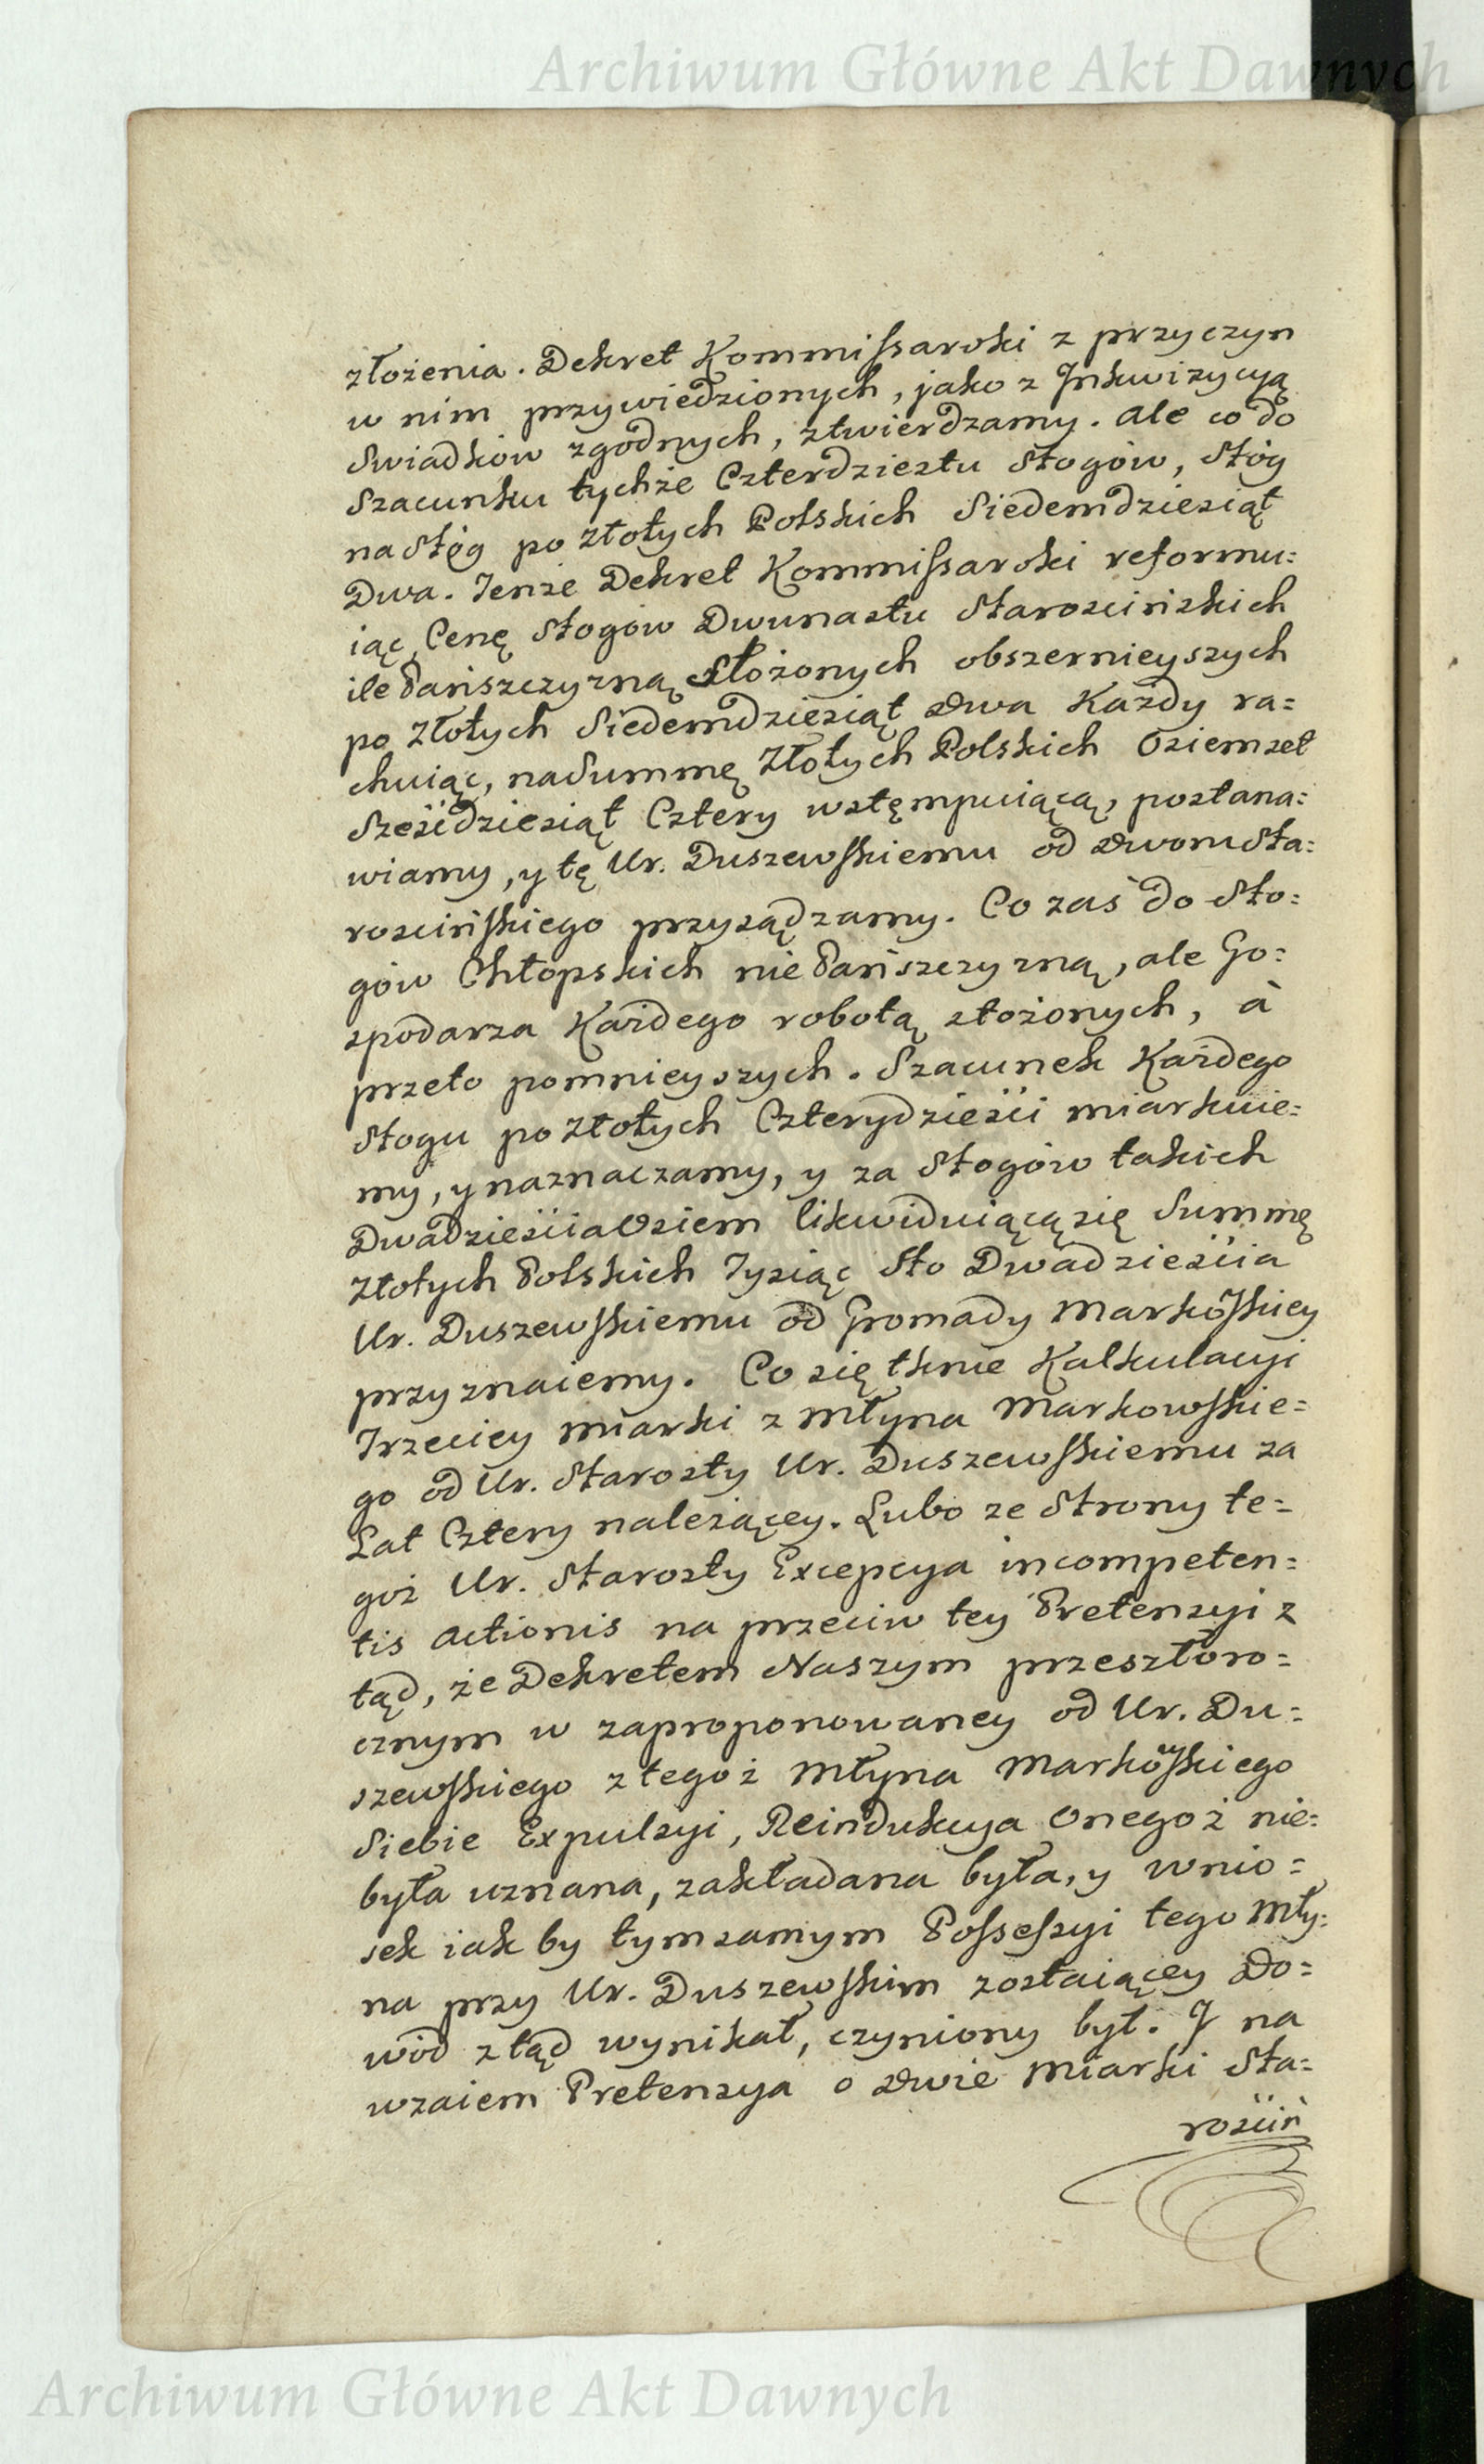 Archiwum Główne Akt Dawnych
złożenia. Dekret Kommissarski z przyczyn
w nim przywiedzionych, jako z Inkwizycyą
Swiadków zgodnych, ztwierdzamy. Ale co do
Szacunku tychże Czterdziestu Stogów, Stóg
na Stóg po Złotych Polskich Siedemdziesiąt
Dwa. Tenże Dekret Kommissarski reformu=
iąc, Cenę Stogów Dwunastu Starościńskich
ile Pańszczyzną Złożonych obszernieyszych
po Złotych Siedemdziesiąt Dwa Każdy ra=
chuiąc, na Summę Złotych Polskich Osiemset
Sześćdziesiąt Cztery wstęmpuiącą, postana=
wiamy, y tę Ur. Duszewskiemu od Dworu Sta=
rościńskiego przysądzamy. Co zaś do Sto=
gów Chłopskich nie Pańszczyzną, ale Go=
spodarza Każdego robotą złożonych, à
przeto pomnieyszych. Szacunek Każdego
Stogu po Złotych Czterydzieści miarkuie=
my, y naznaczamy, y za Stogów takich
Dwadzieścia Osiem likwiduiącą się Summę
Złotych Polskich Tysiąc Sto Dwadzieścia
Ur. Duszewskiemu od Gromady Markowskiey
przyznaiemy. Co się tknie Kalkulacyi
Trzeciey miarki z Młyna Markowskie=
go od Ur. Starosty Ur. Duszewskiemu za
Lat Cztery należącey. Lubo ze Strony te=
goż Ur. Starosty Excepcya incompeten=
tis Actionis na przeciw tey Pretensyi z
tąd, że Dekretem Naszym przeszłoro=
cznym w zaproponowaney od Ur. Du=
szewskiego z tegoż Młyna Markowskiego
Siebie Expulsyi, Reindukcya Onegoż nie=
była uznana, zakładana była, y wnio=
sek iak by tym samym Possessyi tego Mły=
na przy Ur. Duszewskim zostaiącey Do=
wód ztąd wynikał, czyniony był. I na
wzaiem Pretensya o Dwie Miarki Sta=
rościń
Archiwum Główne Akt Dawnych